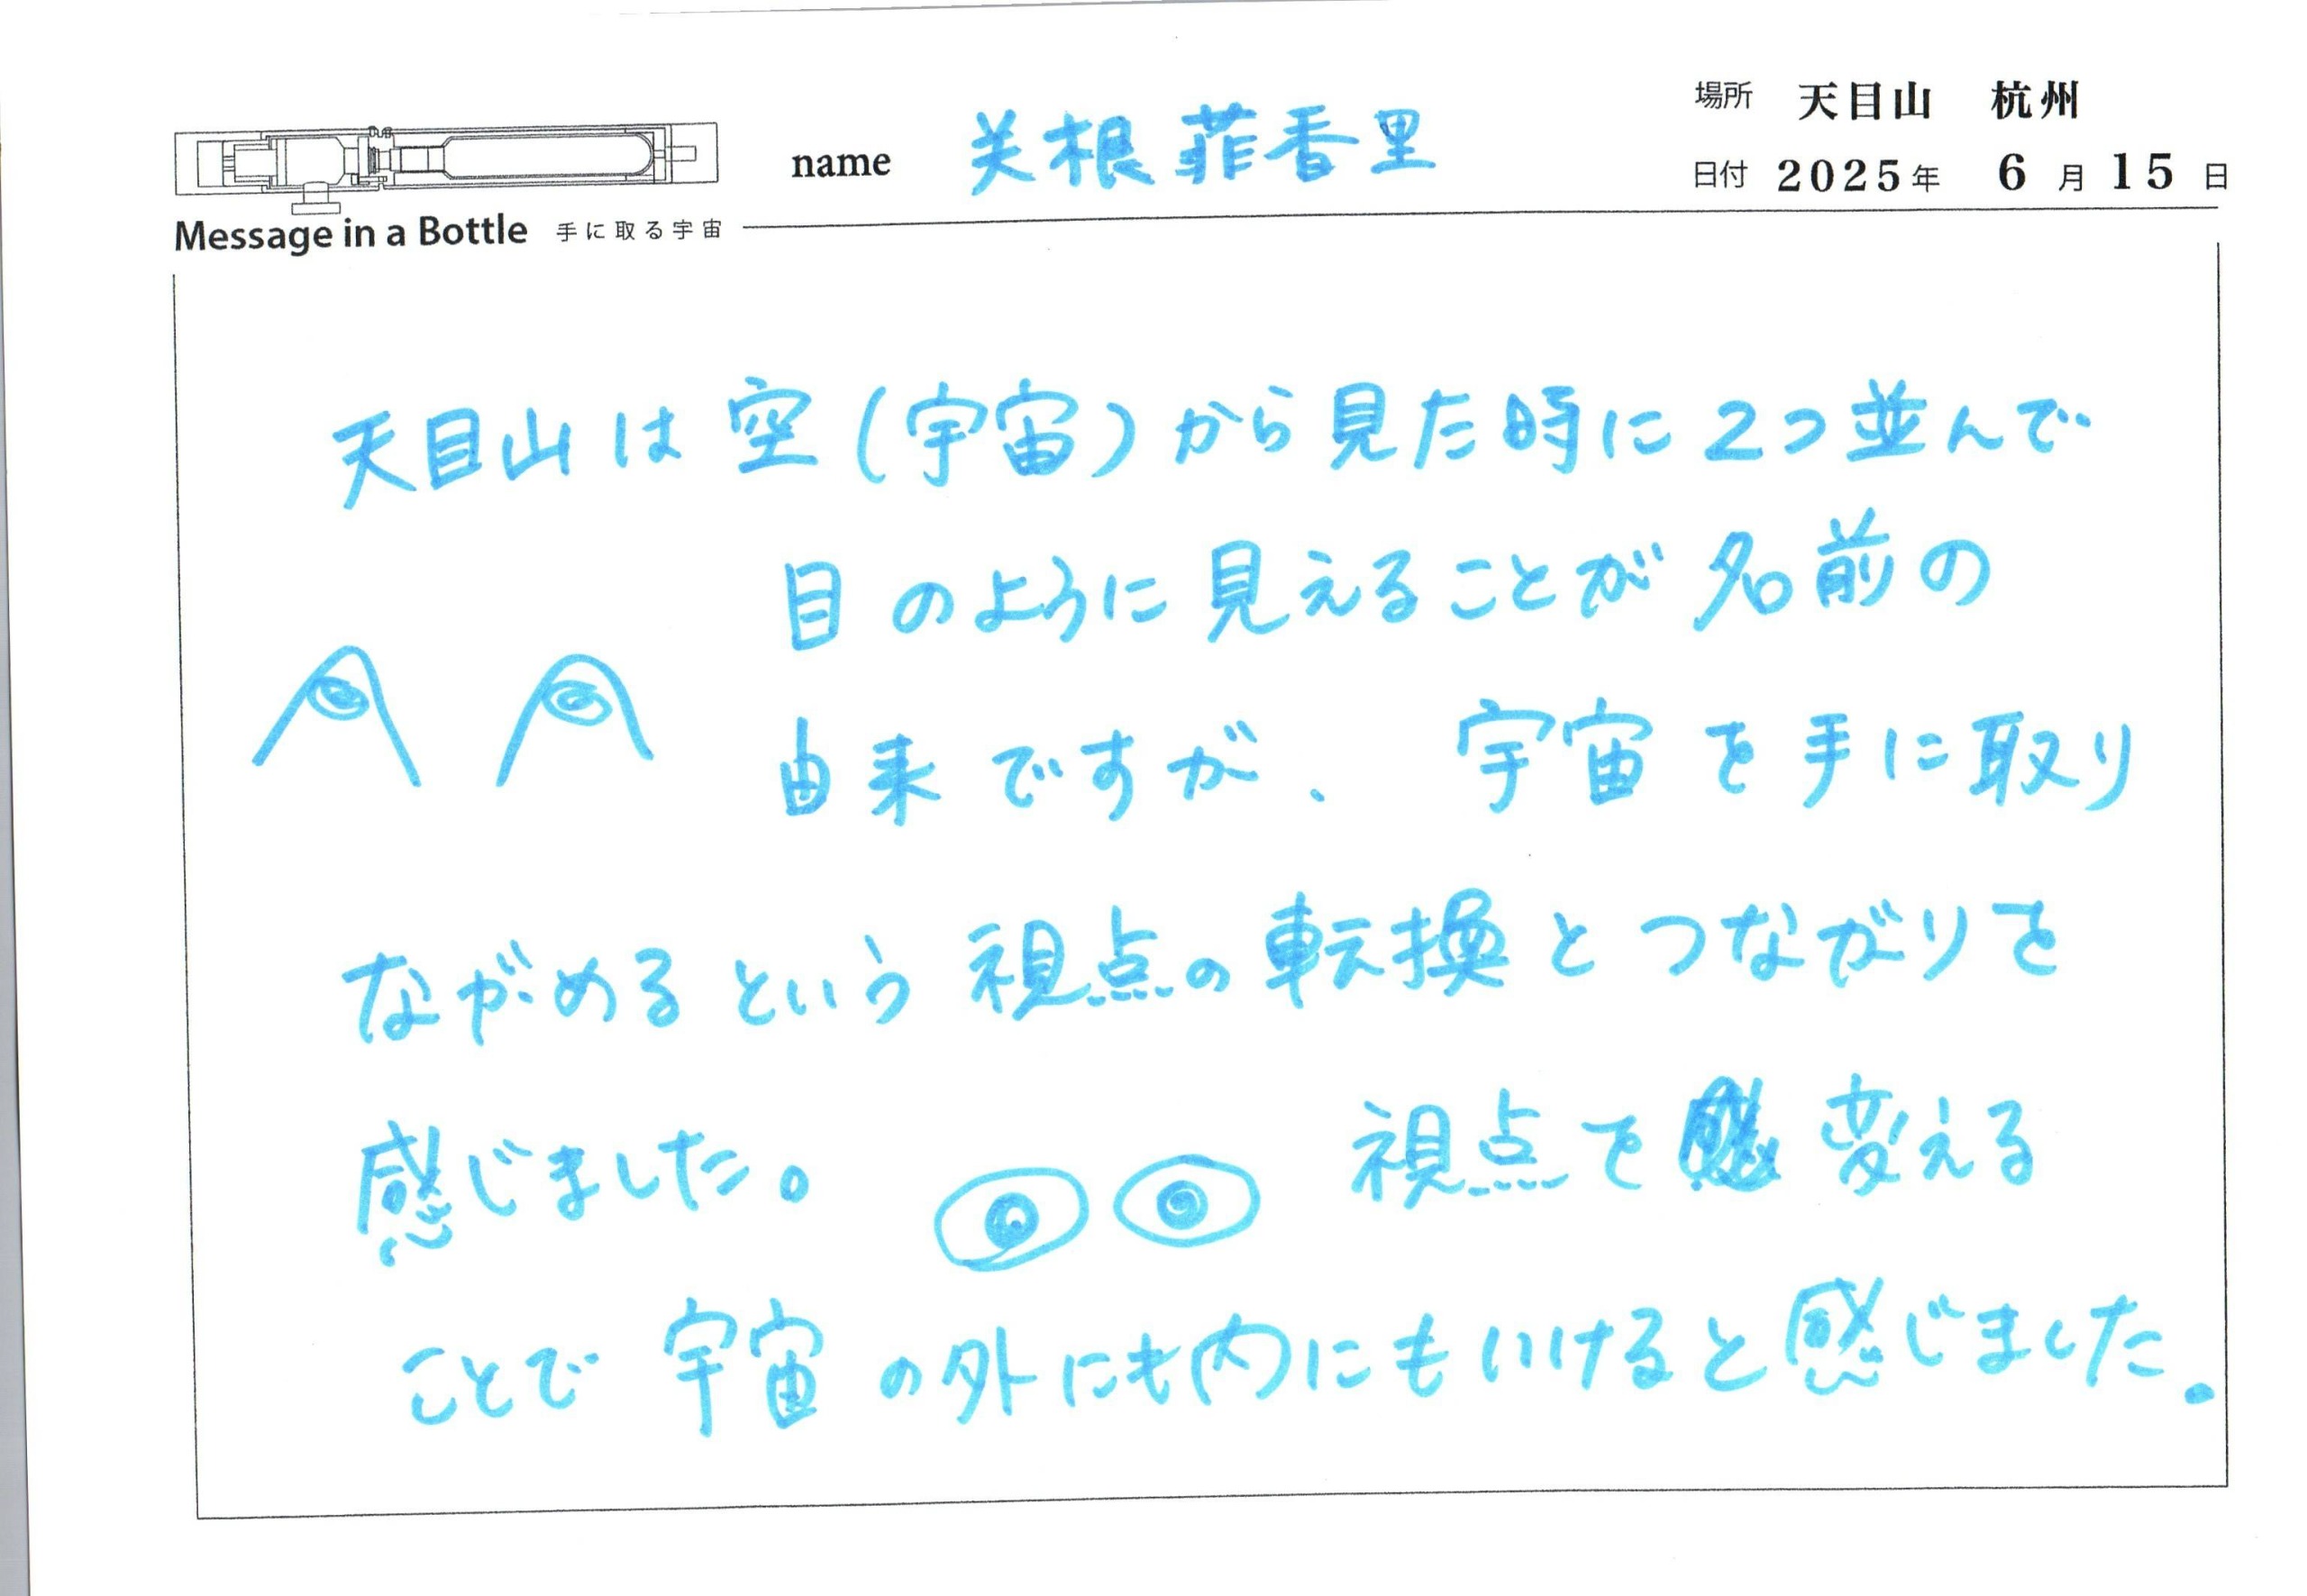 場所 天目山 杭州
name 美根 菲香里
日付 2025年 6月15日
Message in a Bottle 手に取る宇宙
天目山は空(宇宙)から見た時に2つ並んで
目のように見えることが名前の
由来ですが、宇宙を手に取り
ながめるという視点の転換とつながりを
感じました。 視点を変える
ことで宇宙の外にも内にもいけると感じました。